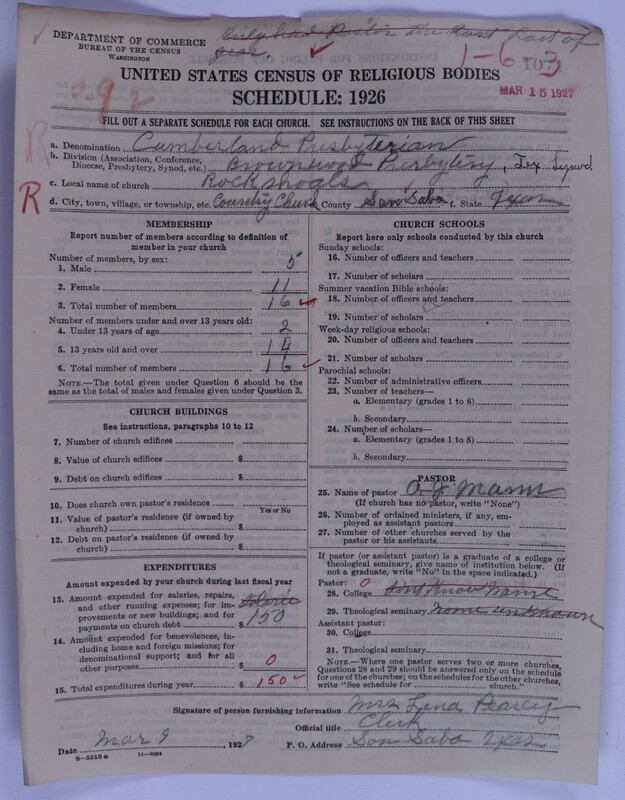 DEPARTMENT OF COMMERCE
BUREAU OF THE CENSUS
WASHINGTON
Only had Pastor the last Part of
year
1-6-3
MAR 15 1927
UNITED STATES CENSUS OF RELIGIOUS BODIES
SCHEDULE: 1926
FILL OUT A SEPARATE SCHEDULE FOR EACH CHURCH. SEE INSTRUCTIONS ON THE BACK OF THIS SHEET
R
a. Denomination Cumberland Presbyterian
b. Division (Association, Conference, Diocese, Presbytery, Synod, etc.) Brownwood Presbytery, Tex Synod
c. Local name of church Rock shoals
R
d. City, town, village, or township, etc. Country Church County San Saba f. State Texas
MEMBERSHIP
Report number of members according to definition of
member in your church
Number of members, by sex:
1. Male 5
2. Female 11
3. Total number of members 16
Number of members under and over 13 years old:
4. Under 13 years of age 2
5. 13 years old and over 14
6. Total number of members 16
NOTE.—The total given under Question 6 should be
same as the total of males and females given under Question 3.
CHURCH BUILDINGS
See instructions, paragraphs 10 to 12
7. Number of church edifices
8. Value of church edifices $
9. Debt on church edifices $
10. Does church own pastor's residence
Yes or No
11. Value of pastor's residence (if owned by
church) $
12. Debt on pastor's residence (if owned by
church) $
EXPENDITURES
Amount expended by your church during last fiscal year
13. Amount expended for salaries, repairs,
and other running expenses; for im-
provements or new buildings; and for
payments on church debt $ 150
14. Amount expended for benevolences, in-
cluding home and foreign missions; for
denominational support; and for all
other purposes $ 0
15. Total expenditures during year $ 150
CHURCH SCHOOLS
Report here only schools conducted by this church
Sunday schools:
16. Number of officers and teachers
17. Number of scholars
Summer vacation Bible schools:
18. Number of officers and teachers
19. Number of scholars
Week-day religious schools:
20. Number of officers and teachers
21. Number of scholars
Parochial schools:
22. Number of administrative officers
23. Number of teachers—
a. Elementary (grades 1 to 8)
b. Secondary
24. Number of scholars—
a. Elementary (grades 1 to 8)
b. Secondary
PASTOR
25. Name of pastor O. J. Mann
(If church has no pastor, write "None")
26. Number of ordained ministers, if any, em-
ployed as assistant pastors
27. Number of other churches served by the
pastor or his assistants
If pastor (or assistant pastor) is a graduate of a college or
theological seminary, give name of institution below. (If
not a graduate, write "No" in the space indicated.)
Pastor: 0
28. College dont know name
29. Theological seminary some unknown
Assistant pastor:
30. College
31. Theological seminary
NOTE.—Where one pastor serves two or more churches,
Questions 28 and 29 should be answered only on the schedule
for one of the churches; on the schedules for the other churches,
write "See schedule for church."
Signature of person furnishing information Mrs Lena
Official title Clerk
Date Mar 9, 1927 P. O. Address San Saba Texas
8-5518a 11-9084